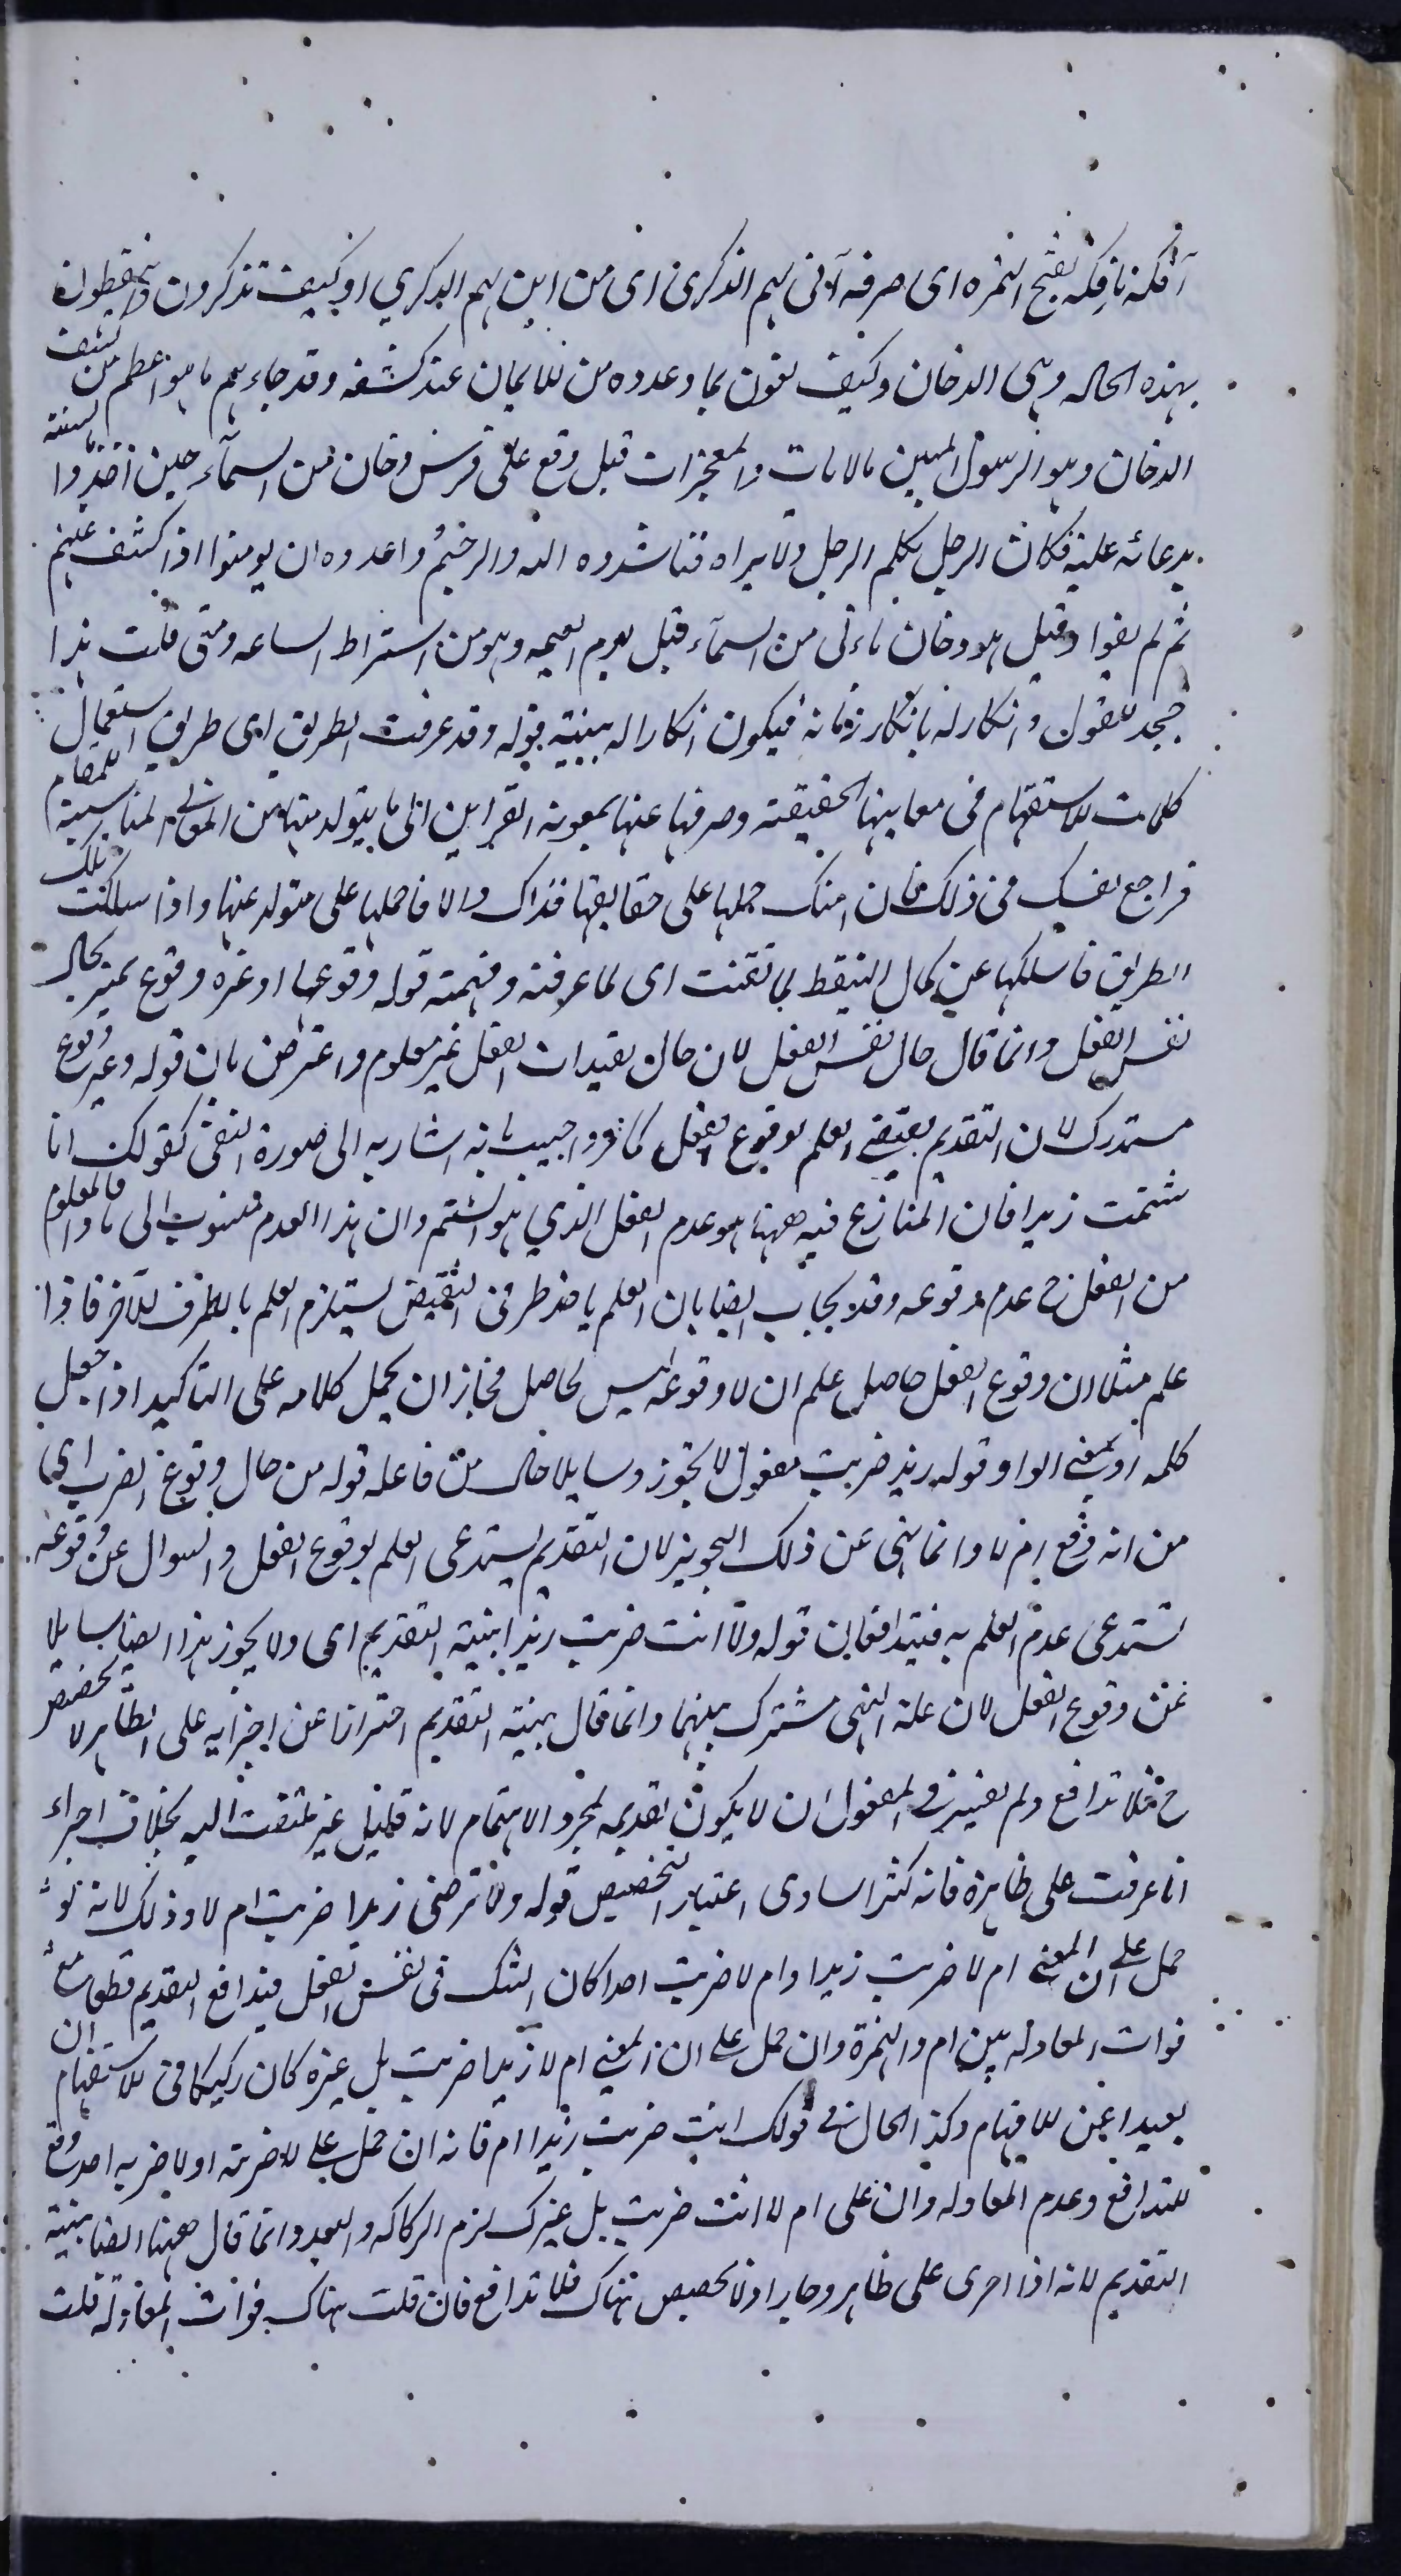 أفكه يافكه بفتح الهمزه اى صرفه أنى لهم الذكرى اى من اين لهم الذكري او كيف تذكرون ويتعظون
بهذه الحاله وهى الدخان وكيف يفون بما وعدوه من الايمان عند كشفه وقد جاءهم ما هو اعظم من كشف
الدخان وهو الرسول المبين بالايات والمعجزات قيل وقع على قريش دخان من السمآء حين
بدعائه عليه فكان الرجل يكلم الرجل ولا يراه فناشدوه الله والرحم واعدوه ان يومنوا اذا كشف عنهم
ثم لم يفوا وقيل هو دخان ياتى من السمآء قبل يوم القيمه وهو من اشتراط الساعه ومتى قلت هذا
جحد للقول وانكار له بانكار زمانه فيكون انكارا له ببينة قوله وقد عرفت الطريق اى طريق استعمال
كلمات الاستفهام فى معانيها الحقيقة وصرفها عنها بمعونة القراين الى ما يتولد منها من المعانى المناسبة للمقام
فراجع نفسك فى ذلك فان امنك حملها على حقايقها فذاك والا فاحملها على متولد عنها واذا سلكت تلك
الطريق فاسلكها عن كمال التيقظ لما لقنت اى لما عرفته وفهمته قوله وقوعها او غيره وقوع تميز بحال
نفس الفعل وانما قال حال نفس الفعل لان حال تقيدات الفعل غير معلوم واعترض بان قوله وغير وقوع
مستدرك لان التقديم يقتضى العلم بوقوع الفعل كما مر واجيب بانه اشار به الى صورة النفى كقولك ما انا
شتمت زيدا فان المتنازع فيه ههنا هو عدم الفعل الذي هو الشتم وان هذا العدم منسوب الى ماذا فالمعلوم
من الفعل ح عدم وقوعه وقد يجاب ايضا بان العلم باحد طرفى النقيض يستلزم العلم بالطرف الاخر فاذا
علم مثلا ان وقوع الفعل حاصل علم ان لا وقوعه ليس بحاصل فجاز ان يحمل كلامه على التاكيد اذا جعل
كلمه او بمعنى الواو قوله زيد ضربت مفعول لا تجوز وسايلا حال من فاعله قوله من حال وقوع الضرب اى
من انه وقع ام لا وانما نهى عن ذلك التجويز لان التقديم يستدعى العلم بوقوع الفعل والسوال عن وقوعه
تستدعى عدم العلم به فيتدافعان قوله ولا انت ضربت زيدا بنية التقديم اى ولا يجوز هذا ايضا سايلا
عن وقوع الفعل لان علة النهى مشترك بينهما وانما قال بنية التقديم احترازا عن اجرايه على الظاهر لا تخصيص
ح فلا تدافع ولم يعتبر فى المفعول ان لا يكون تقديمه لمجرد الاهتمام لانه قليل غير ملتفت اليه بخلاف اجراء
انا عرفت على ظاهره فانه كثير اساوى اعتبار التخصيص قوله ولا ترضى زيدا ضربت ام لا وذلك لانه لو
حمل على ان المعنى ام لا ضربت زيدا وام لا ضربت احدا كان الشك فى نفس الفعل فيدافع التقديم قطعا مع
فوات المعادله بين ام والهمزة وان حمل على ان المعنى ام لا زيدا ضربت بل غيره كان ركيكا فى الاستفهام
بعيدا عن الافهام وكذا الحال فى قولك انت ضربت زيدا ام فانه ان حمل على لا ضربته او لا ضربه احد وقع
التدافع وعدم المعادله وان على ام لا انت ضربت بل غيرك لزم الركاكه والبعد وانما قال ههنا ايضا بنية
التقديم لانه اذا اجرى على ظاهر وجاز اذ لا تخصيص هناك فلا تدافع فان قلت هناك فوات المعادله قلت